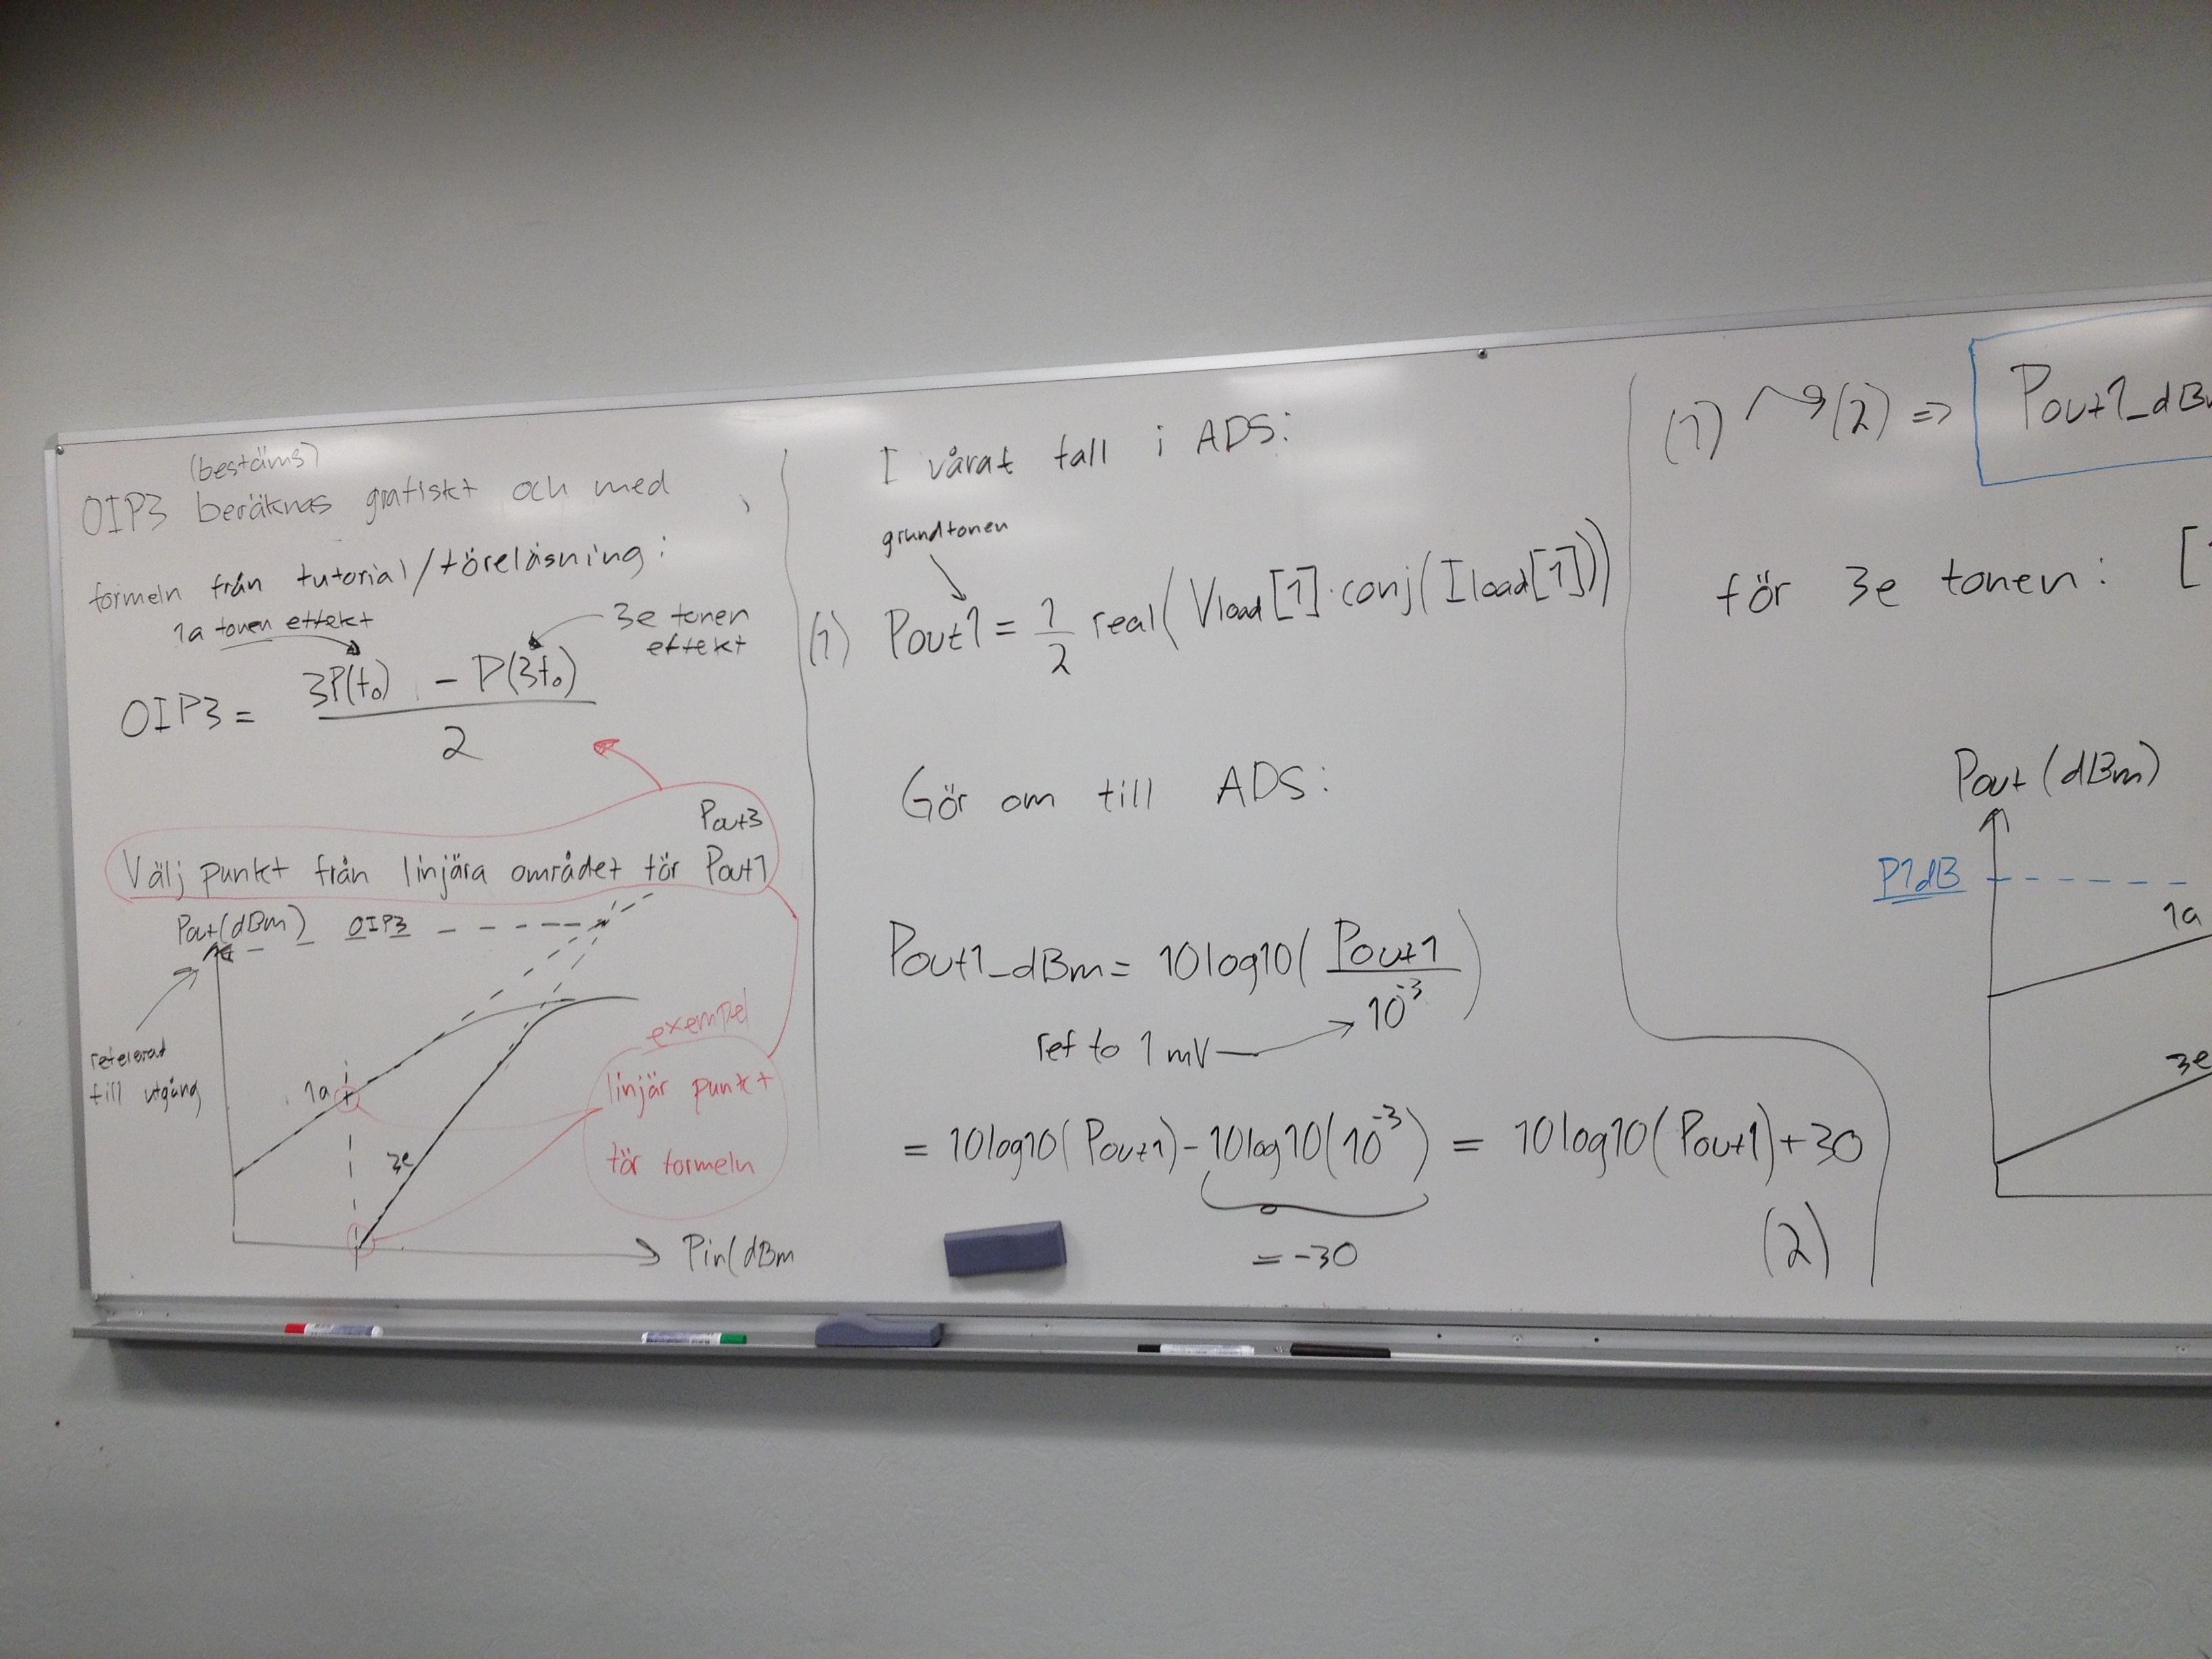 (bestäms)
OIP3 beräknas grafiskt och med
formeln från tutorial/föreläsning:
1a tonen effekt
3e tonen
effekt
OIP3 = (3P(f₀) - P(3f₀)) / 2
Pout3
Välj punkt från linjära området för Pout1
Pout(dBm) OIP3
refererad
till utgång
1a
3e
exempel
linjär punkt
för formeln
Pin(dBm
I vårat fall i ADS:
grundtonen
(1) Pout1 = 1/2 real(Vload[1]·conj(Iload[1]))
Gör om till ADS:
Pout1_dBm = 10log10(Pout1 / 10⁻³)
ref to 1 mV
= 10log10(Pout1) - 10log10(10⁻³) = 10log10(Pout1)+30
= -30
(2)
(1) (2) => Pout1_dBm
för 3e tonen: [
Pout (dBm)
P1dB
1a
3e